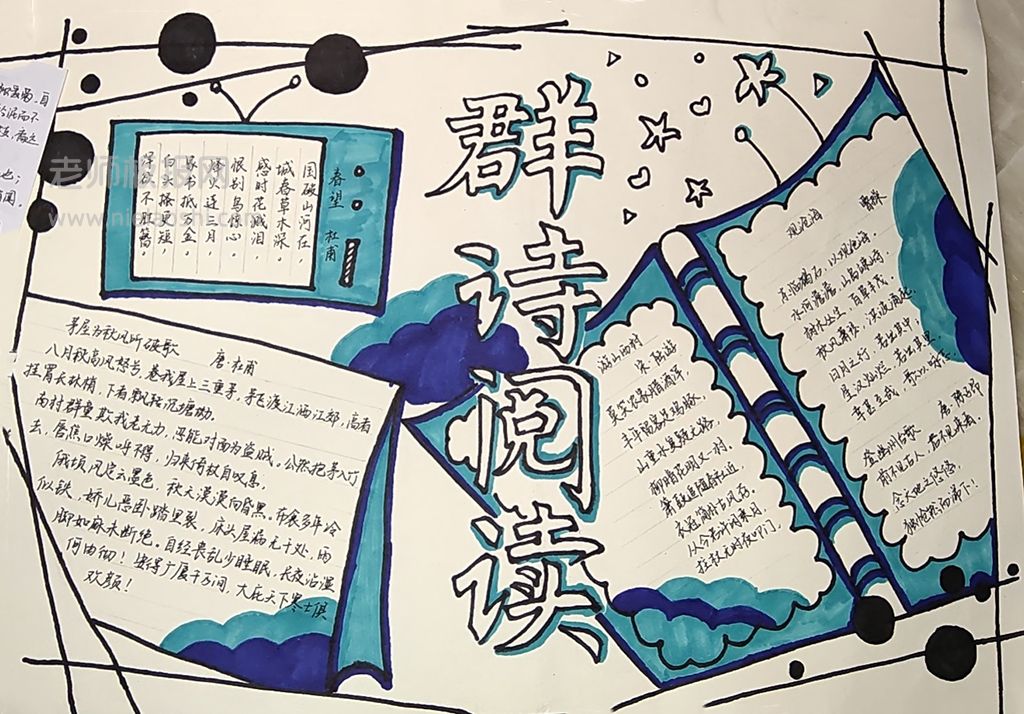 群诗阅读
春望
杜甫
国破山河在，
城春草木深。
感时花溅泪，
恨别鸟惊心。
烽火连三月，
家书抵万金。
白头搔更短，
浑欲不胜簪。
茅屋为秋风所破歌
唐·杜甫
八月秋高风怒号，卷我屋上三重茅，茅飞渡江洒江郊，高者
挂罥长林梢，下者飘转沉塘坳。
南村群童欺我老无力，忍能对面为盗贼。公然抱茅入竹
去，唇焦口燥呼不得，归来倚杖自叹息。
俄顷风定云墨色，秋天漠漠向昏黑。布衾多年冷
似铁，娇儿恶卧踏里裂，床头屋漏无干处，雨
脚如麻未断绝。自经丧乱少睡眠，长夜沾湿
何由彻！安得广厦千万间，大庇天下寒士俱
欢颜！
游山西村
宋·陆游
莫笑农家腊酒浑，
丰年留客足鸡豚。
山重水复疑无路，
柳暗花明又一村。
箫鼓追随春社近，
衣冠简朴古风存。
从今若许闲乘月，
拄杖无时夜叩门。
观沧海
曹操
东临碣石，以观沧海。
水何澹澹，山岛竦峙。
树木丛生，百草丰茂。
秋风萧瑟，洪波涌起。
日月之行，若出其中，
星汉灿烂，若出其里。
幸甚至哉，歌以咏志。
登幽州台歌
唐·陈子昂
前不见古人，后不见来者。
念天地之悠悠，
独怆然而涕下！
老师板报网